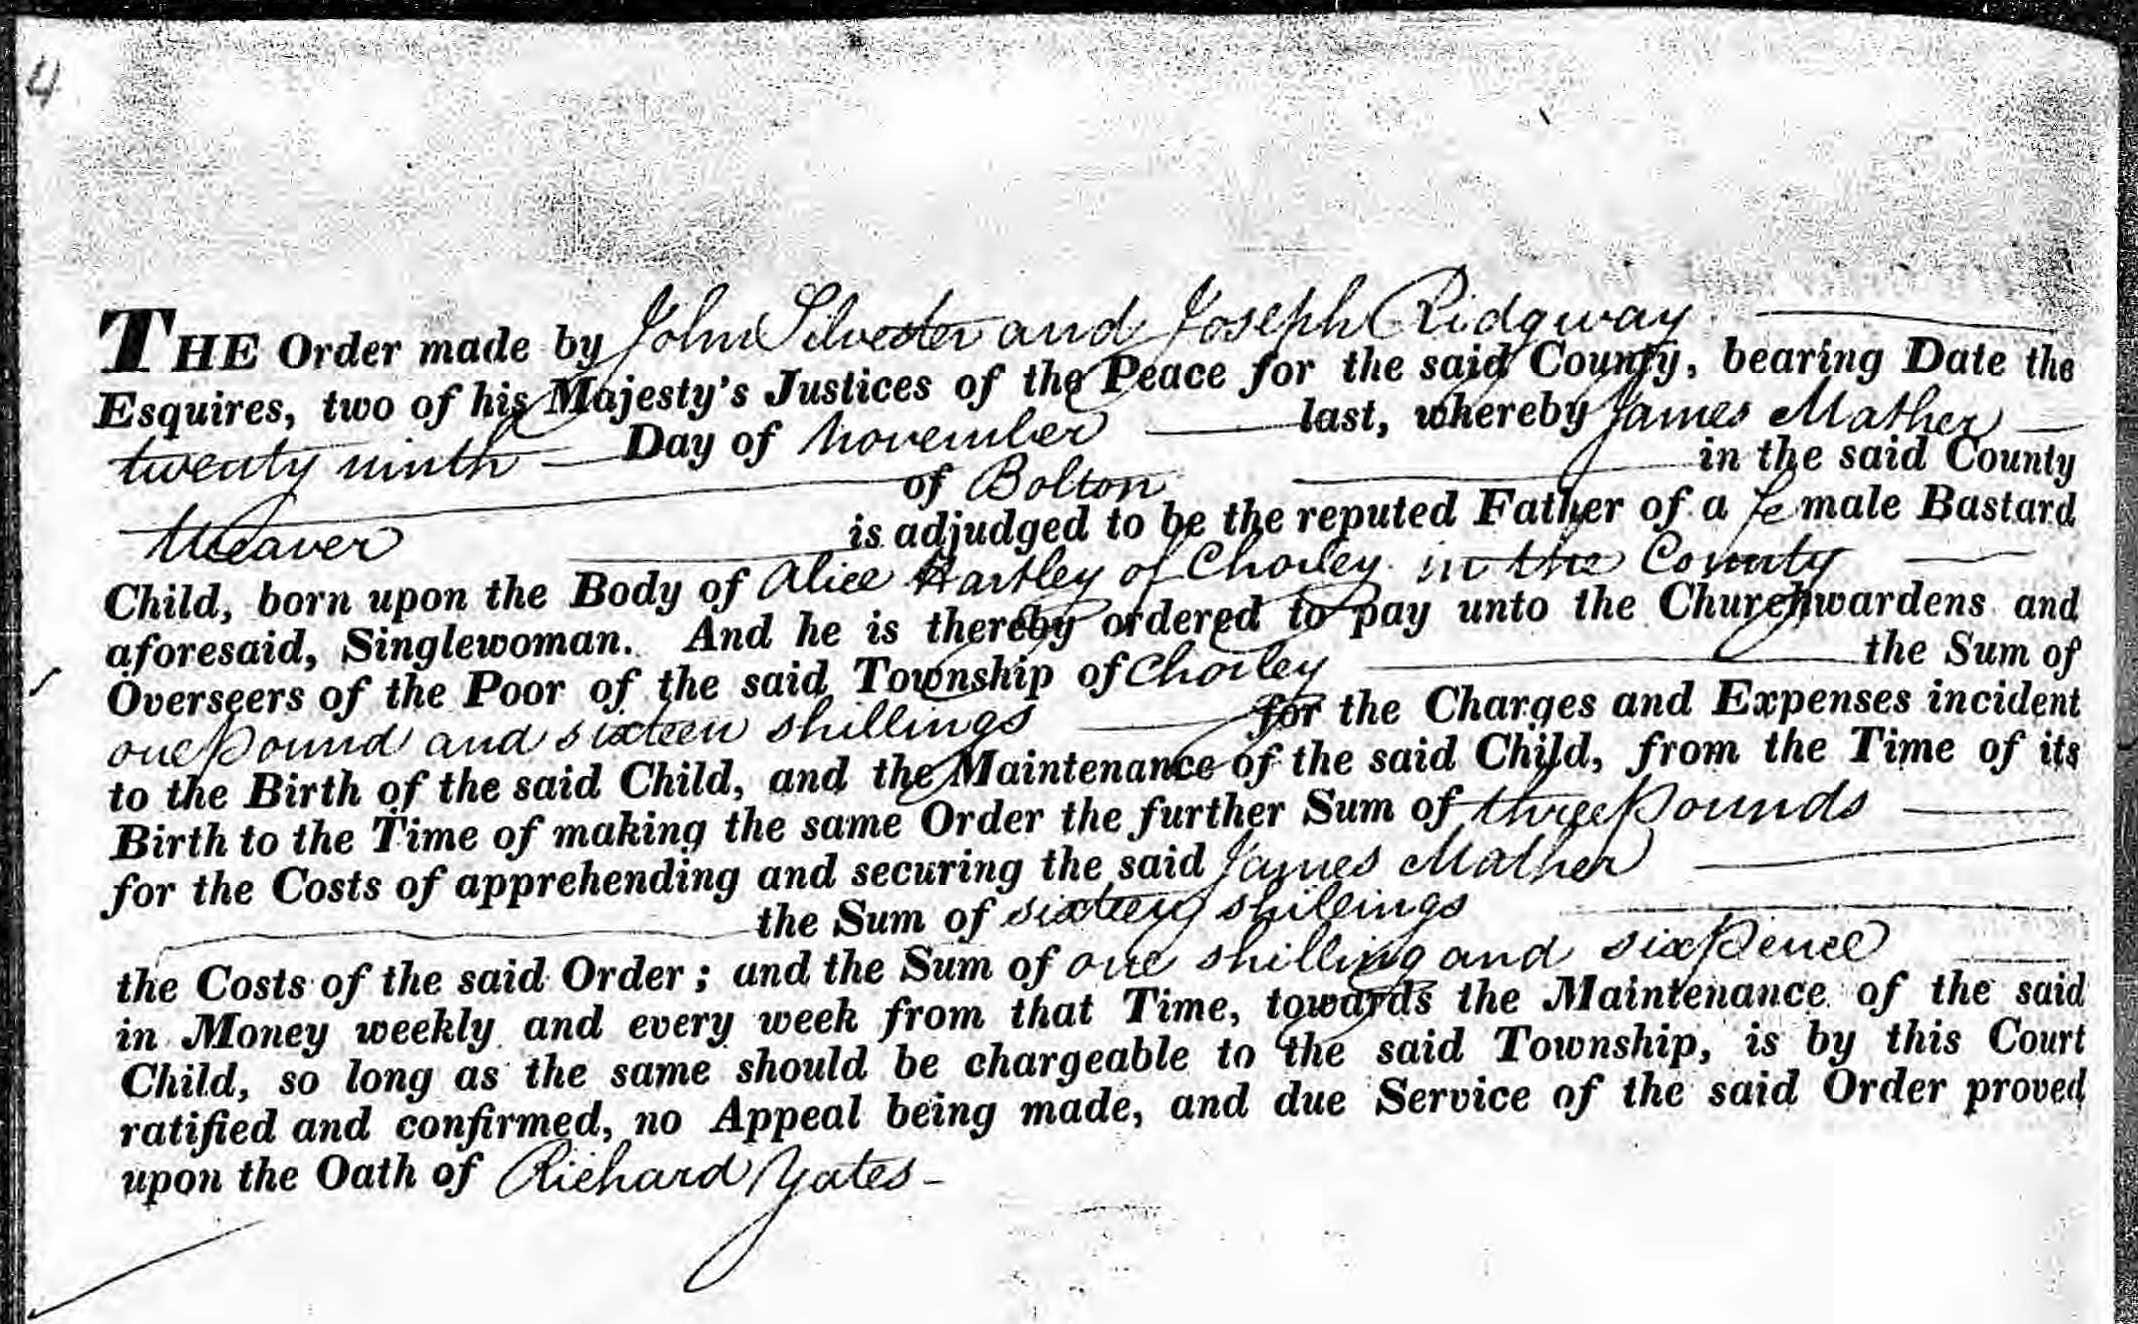 4
THE Order made by John Silvester and Joseph Ridgway
Esquires, two of his Majesty's Justices of the Peace for the said County, bearing Date the
twenty ninth Day of November last, whereby James Mather
of Bolton in the said County
Weaver is adjudged to be the reputed Father of a female Bastard
Child, born upon the Body of Alice Hartley of Chorley in the County
aforesaid, Singlewoman. And he is thereby ordered to pay unto the Churchwardens and
Overseers of the Poor of the said Township of Chorley the Sum of
one pound and sixteen shillings for the Charges and Expenses incident
to the Birth of the said Child, and the Maintenance of the said Child, from the Time of its
Birth to the Time of making the same Order the further Sum of three pounds
for the Costs of apprehending and securing the said James Mather
the Sum of sixteen shillings
the Costs of the said Order; and the Sum of one shilling and sixpence
in Money weekly and every week from that Time, towards the Maintenance of the said
Child, so long as the same should be chargeable to the said Township, is by this Court
ratified and confirmed, no Appeal being made, and due Service of the said Order proved
upon the Oath of Richard Yates-